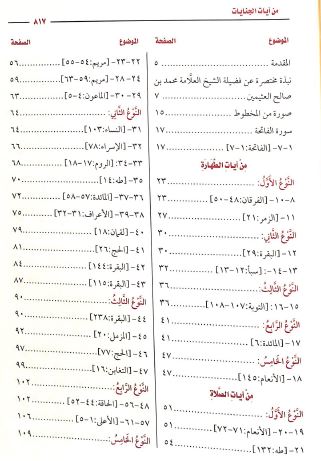 من آيات الجنايات
٨١٧
الموضوع الصفحة
المقدمة ٥
نبذة مختصرة عن فضيلة الشيخ العلامة محمد بن
صالح العثيمين ٧
صورة من المخطوط ١٥
سورة الفاتحة ١٧
١-٧- [الفاتحة:١-٧] ١٧
من آيات الطهارة
النوع الأول: ٢٣
٨-١٠- [الفرقان:٤٨-٥٠] ٢٣
١١- [الزمر:٢١] ٢٧
النوع الثاني: ٣٠
١٢- [البقرة:٢٩] ٣٠
١٣-١٤- [سبأ:١٢-١٣] ٣٢
النوع الثالث: ٣٦
١٥-١٦- [التوبة:١٠٧-١٠٨] ٣٦
النوع الرابع: ٤١
١٧- [المائدة:٦] ٤١
النوع الخامس: ٤٧
١٨- [الأنعام:١٤٥] ٤٧
من آيات الصلاة
النوع الأول: ٥١
١٩-٢٠- [الأنعام:٧١-٧٢] ٥١
٢١- [طه:١٣٢] ٥٤
الموضوع الصفحة
٢٢-٢٣- [مريم:٥٤-٥٥] ٥٦
٢٤-٢٨- [مريم:٥٩-٦٣] ٥٩
٢٩-٣٠- [الماعون:٤-٥] ٦٣
النوع الثاني: ٦٤
٣١- [النساء:١٠٣] ٦٤
٣٢- [الإسراء:٧٨] ٦٦
٣٣-٣٤- [الروم:١٧-١٨] ٦٨
٣٥- [طه:١٤] ٧٠
٣٦-٣٧- [المائدة:٥٧-٥٨] ٧٢
٣٨-٣٩- [الأعراف:٣١-٣٢] ٧٥
٤٠- [لقمان:١٨] ٧٩
٤١- [الحج:٢٦] ٨١
٤٢- [البقرة:١٤٤] ٨٤
٤٣- [البقرة:١١٥] ٨٧
النوع الثالث: ٩٠
٤٤- [البقرة:٢٣٨] ٩٠
٤٥- [المزمل:٢٠] ٩٢
٤٦- [الحج:٧٧] ٩٧
٤٧- [التغابن:١٦] ٩٩
النوع الرابع: ١٠٢
٤٨-٥٦- [الحاقة:٤٤-٥٢] ١٠٢
٥٧-٦١- [الأعلى:١-٥] ١٠٦
النوع الخامس: ١٠٩